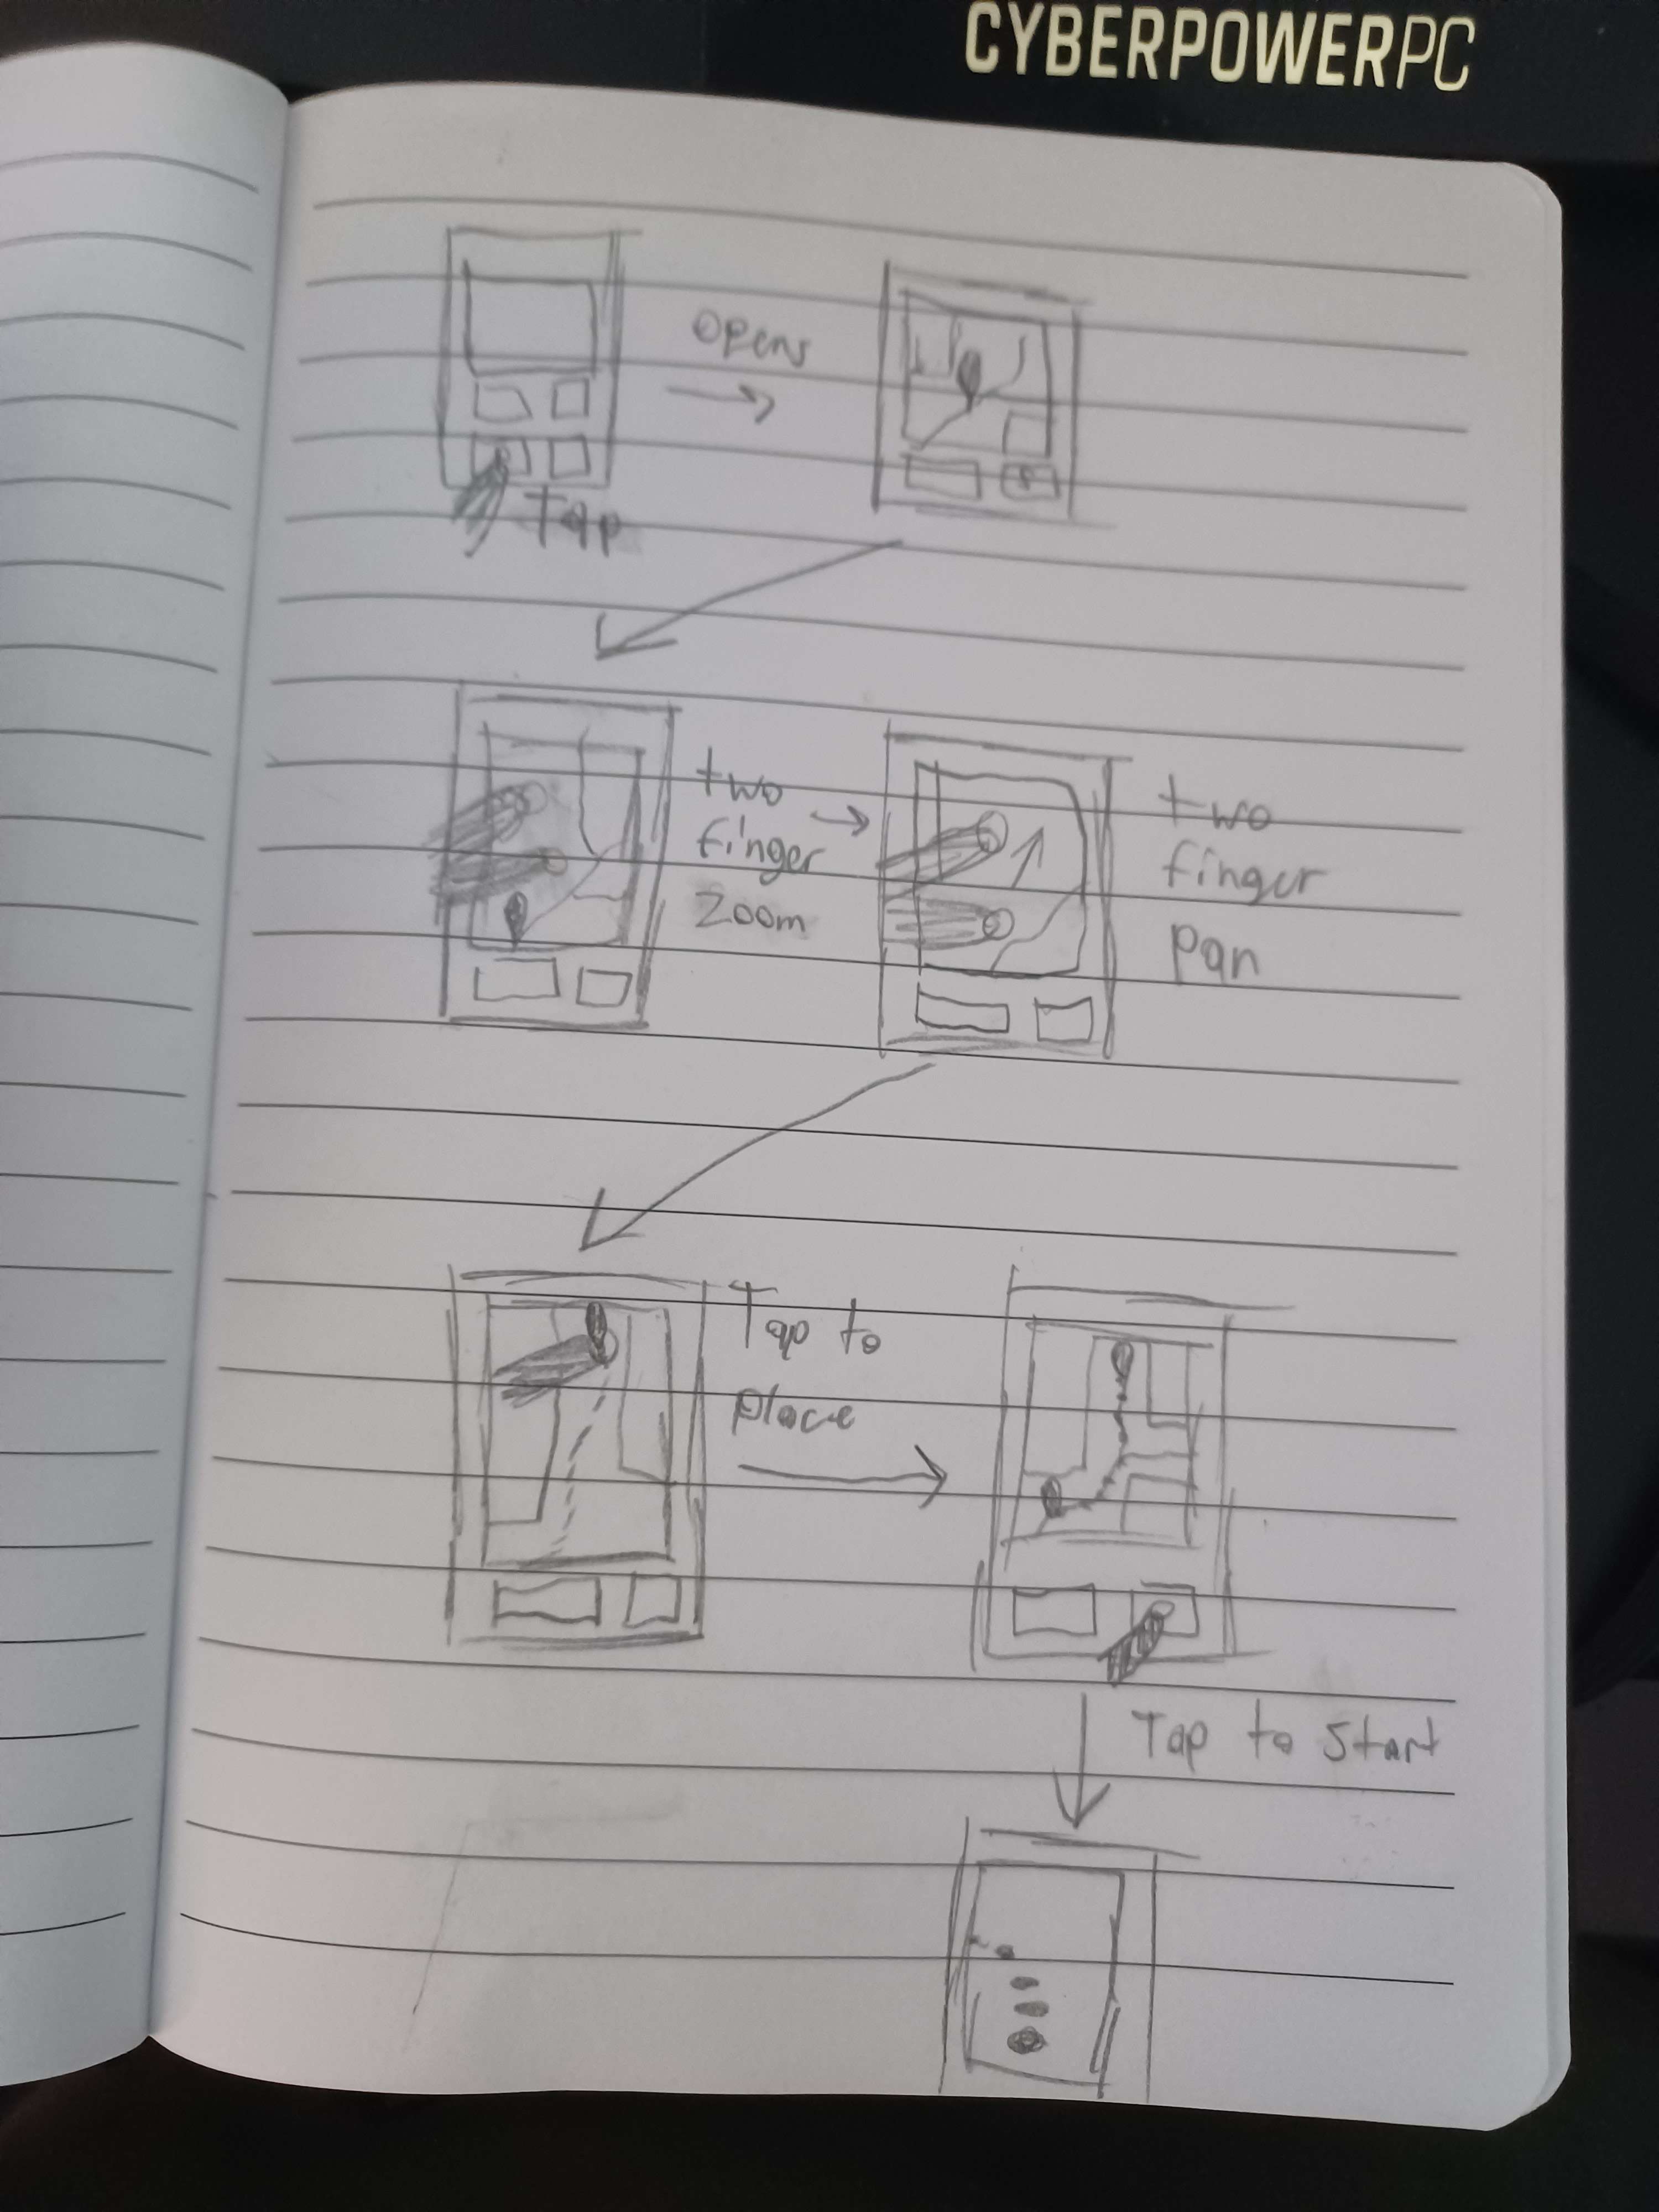 CYBERPOWERPC
opens
Tap
two
finger
zoom
two
finger
pan
Tap to
place
Tap to start